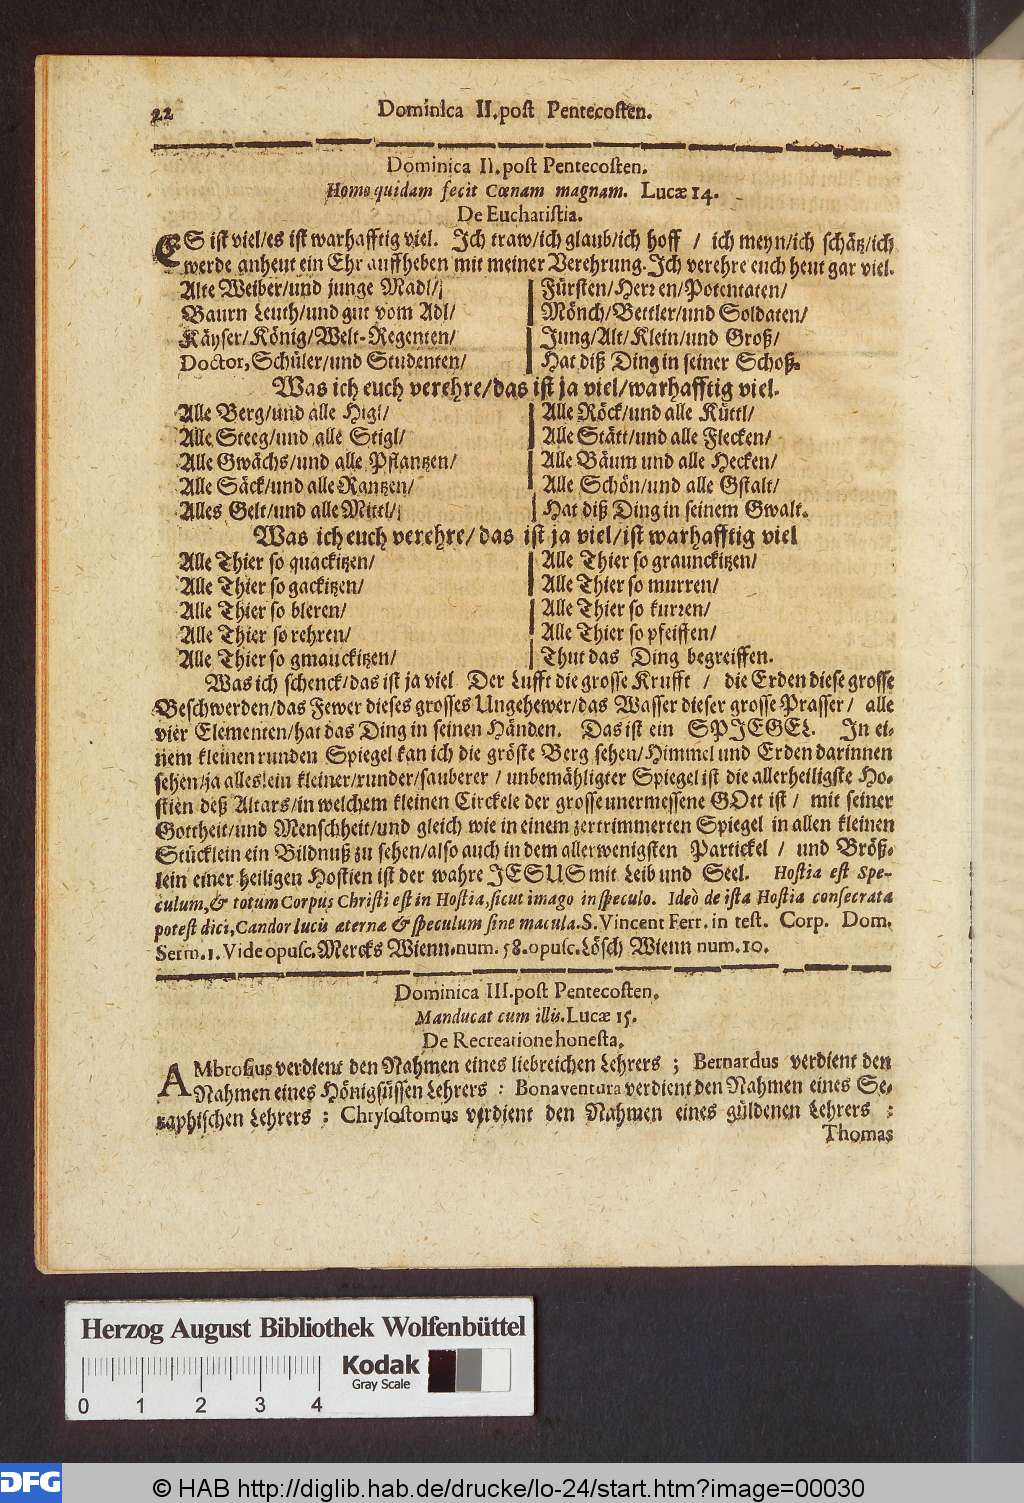 22
Dominica II. post Pentecosten.
Dominica II. post Pentecosten.
Homo quidam fecit Cœnam magnam. Lucæ 14.
De Eucharistia.
ES ist viel/es ist warhafftig viel. Ich traw/ich glaub/ich hoff / ich meyn/ich schätz/ich
werde anheut ein Ehr auffheben mit meiner Verehrung. Ich verehre euch heut gar viel.
Alte Weiber/und junge Madl/
Baurn Leuth/und gut vom Adl/
Käyser/König/Welt-Regenten/
Doctor, Schüler/und Studenten/
Fürsten/Herren/Potentaten/
Mönch/Bettler/und Soldaten/
Jung/Alt/Klein/und Groß/
Hat diß Ding in seiner Schoß.
Was ich euch verehre/das ist ja viel/warhafftig viel.
Alle Berg/und alle Higl/
Alle Steeg/und alle Stigl/
Alle Gwächs/und alle Pflantzen/
Alle Säck/und alle Rantzen/
Alles Gelt/und alle Mittl/
Alle Röck/und alle Küttl/
Alle Stätt/und alle Flecken/
Alle Bäum und alle Hecken/
Alle Schön/und alle Gstalt/
Hat diß Ding in seinem Gwalt.
Was ich euch verehre/das ist ja viel/ist warhafftig viel
Alle Thier so quackitzen/
Alle Thier so gackitzen/
Alle Thier so bleren/
Alle Thier so rehren/
Alle Thier so gmauckitzen/
Alle Thier so graunckitzen/
Alle Thier so murren/
Alle Thier so kurren/
Alle Thier so pfeiffen/
Thut das Ding begreiffen.
Was ich schenck/das ist ja viel Der Lufft die grosse Krufft / die Erden diese grosse
Beschwerden/das Fewer dieses grosses Ungehewer/das Wasser dieser grosse Prasser/ alle
vier Elementen/hat das Ding in seinen Händen. Das ist ein SPIEGEL. In ei-
nem kleinen runden Spiegel kan ich die gröste Berg sehen/Himmel und Erden darinnen
sehen/ja alles! ein kleiner/runder/sauberer / unbemähligter Spiegel ist die allerheiligste Ho-
stien deß Altars/in welchem kleinen Circkele der grosse unermessene GOtt ist / mit seiner
Gottheit/und Menschheit/und gleich wie in einem zertrimmerten Spiegel in allen kleinen
Stücklein ein Bildnuß zu sehen/also auch in dem allerwenigsten Partickel / und Bröß-
lein einer heiligen Hostien ist der wahre JESUS mit Leib und Seel. Hostia est Spe-
culum, & totum Corpus Christi est in Hostia, sicut imago in speculo. Ideò de ista Hostia consecrata
potest dici, Candor lucis æternæ & speculum sine macula. S. Vincent Ferr. in test. Corp. Dom.
Serm. 1. Vide opusc. Mercks Wienn. num. 58. opusc. Lösch Wienn num. 10.
Dominica III. post Pentecosten.
Manducat cum illis. Lucæ 15.
De Recreatione honesta.
AMbrosius verdient den Nahmen eines liebreichen Lehrers ; Bernardus verdient den
Nahmen eines Hönigsüssen Lehrers : Bonaventura verdient den Nahmen eines Se-
raphischen Lehrers : Chrysostomus verdient den Nahmen eines güldenen Lehrers :
Thomas
Herzog August Bibliothek Wolfenbüttel
Kodak
Gray Scale
0 1 2 3 4
DFG
© HAB http://diglib.hab.de/drucke/lo-24/start.htm?image=00030